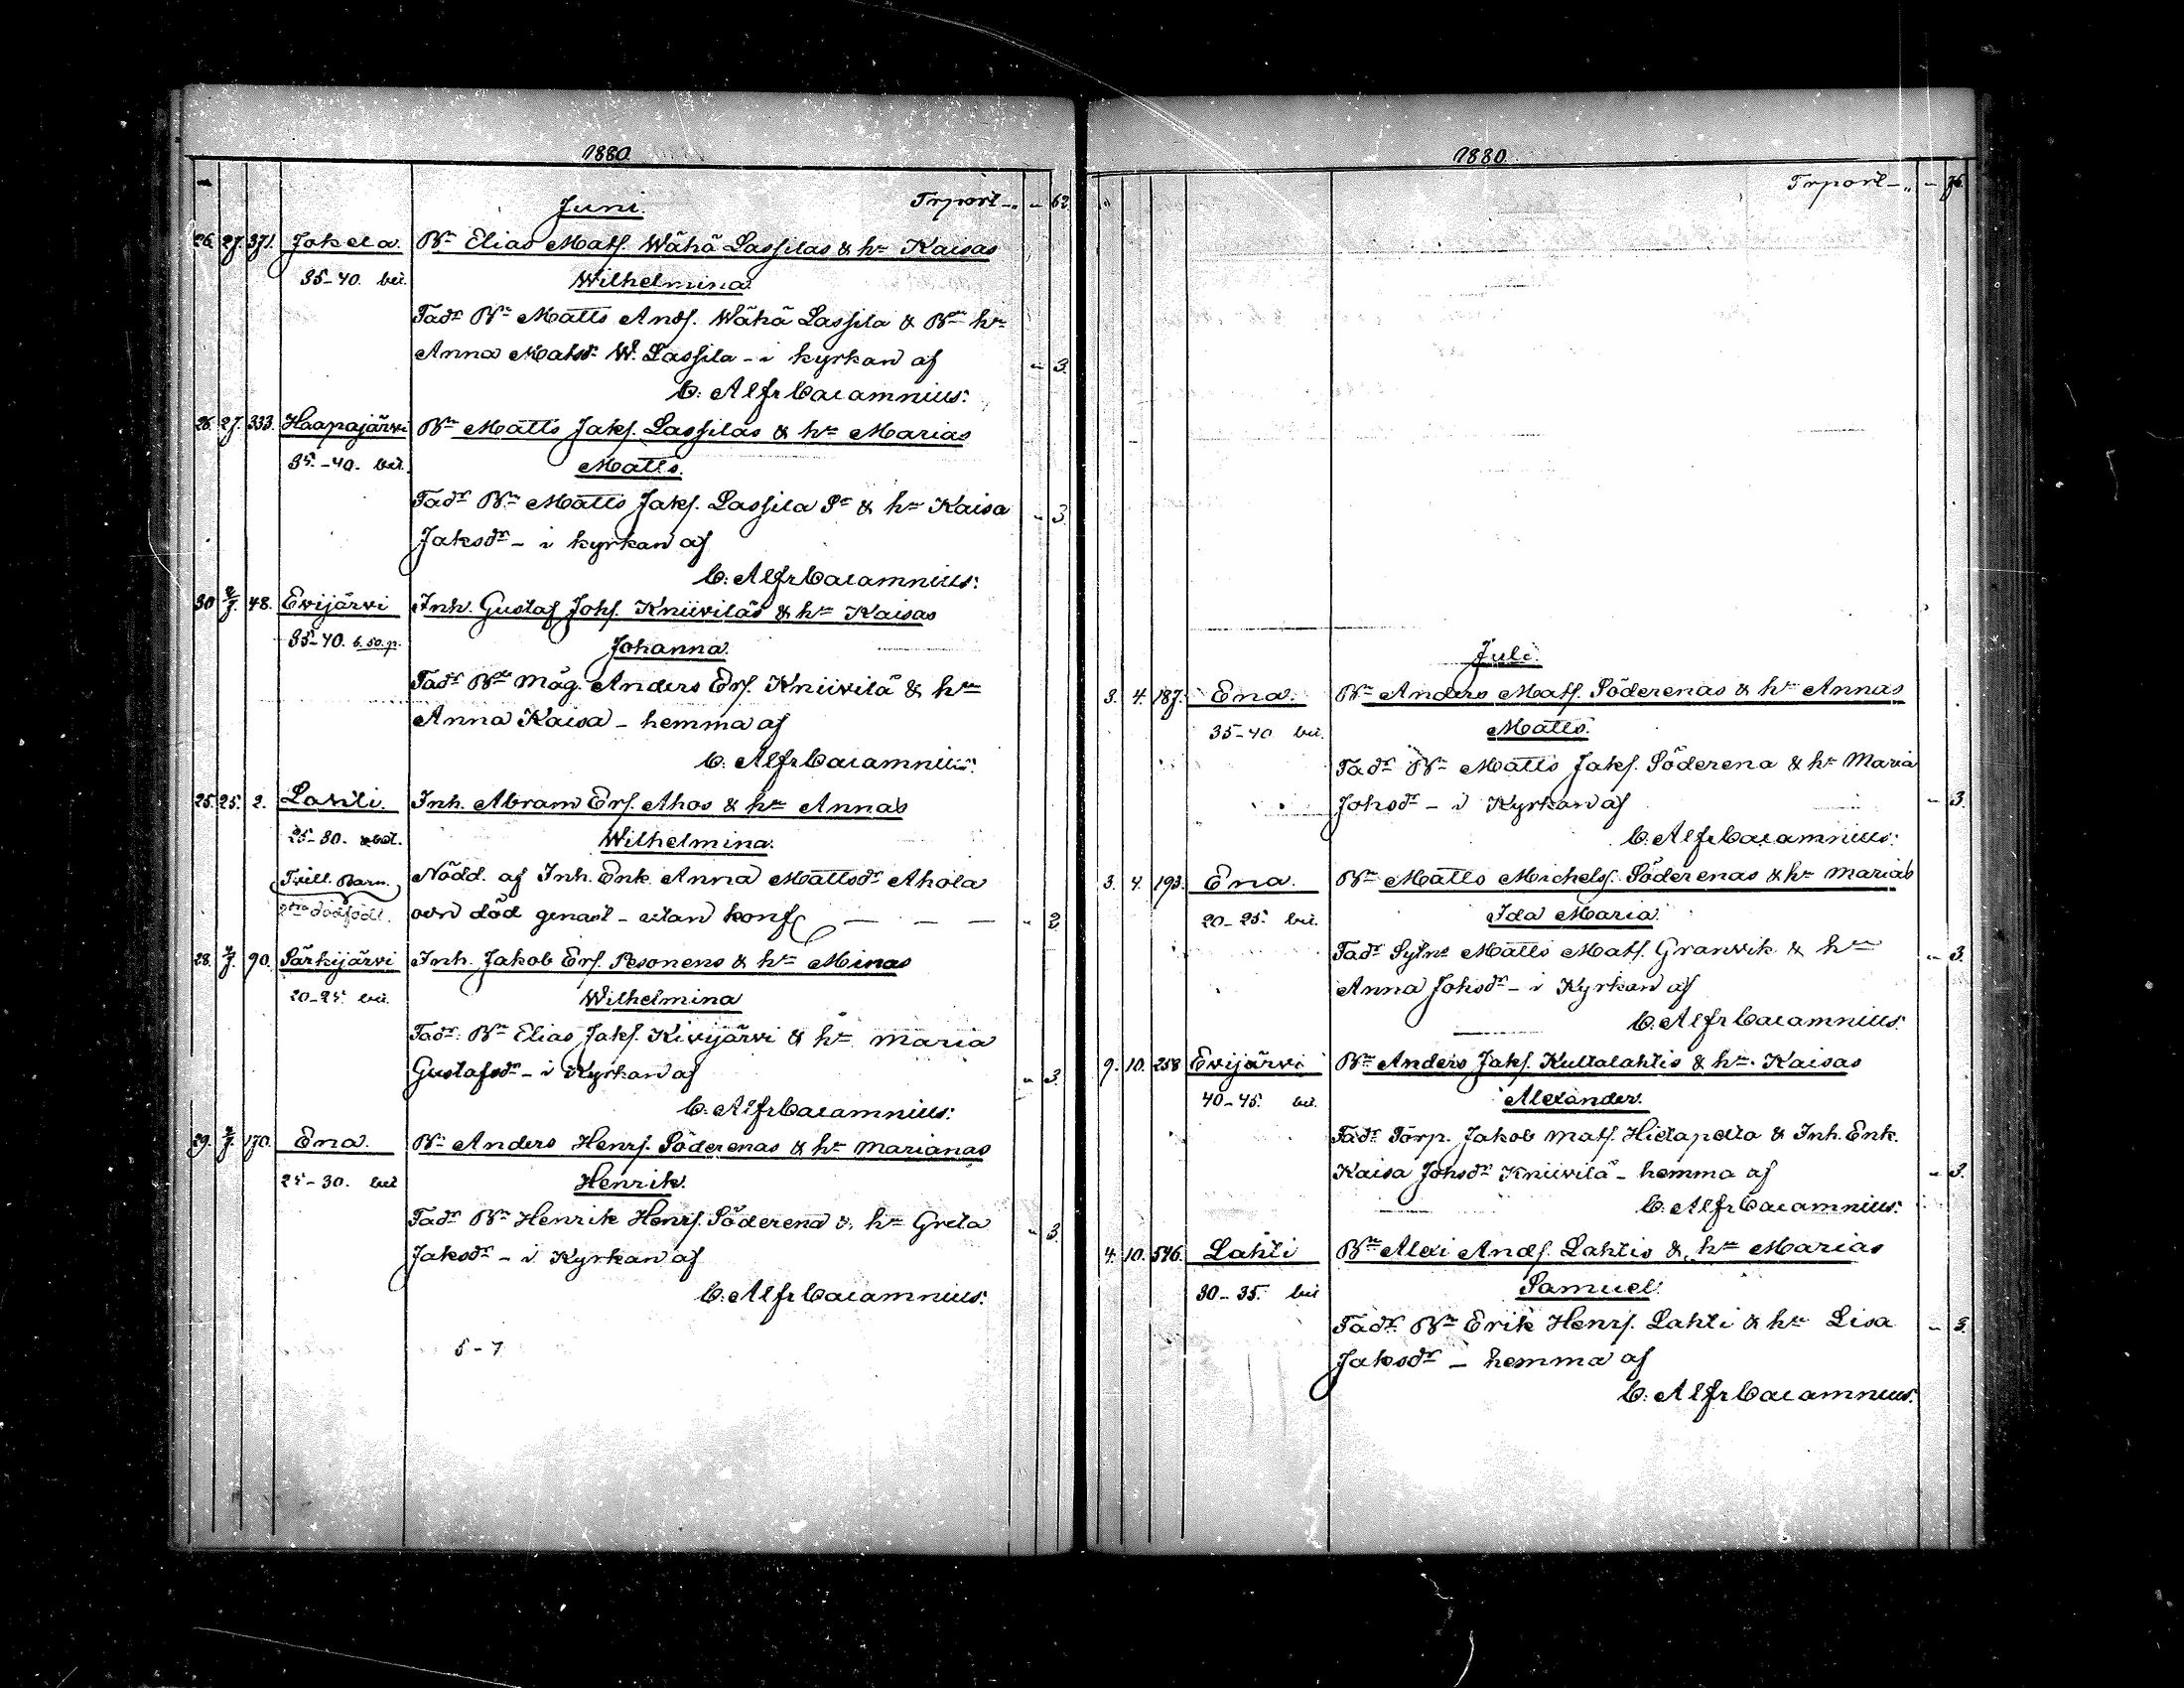 1880.
Juni. Trport - „ - 62.
26. 27. 371. Jokela. Bn Elias Mats. Wähä Lassilas & hn Kaisas
35-40. bet. Wilhelmina.
Fadr Bn Matts Ands. Wähä Lassila & Bn hn
Anna Matsdr W. Lassila - i kyrkan af - 3.
C. Alfr Cajamnius.
26. 27. 333. Haapajärvi Bn Matts Jaks. Lassilas & hn Marias
35.-40. bet. Matts.
Fadr Bn Matts Jaks. Lassila Sr & hn Kaisa - 3.
Jaksdr - i kyrkan af
C. Alfr Cajamnius.
30 2/7. 48. Evijärvi Inh. Gustaf Johs. Kniiviläs & hn Kaisas
35-40. 6.50.p. Johanna.
Fadr Bn måg. Anders Ers. Kniivilä & hn
Anna Kaisa - hemma af
C. Alfr Cajamnius.
25. 25. 2. Lahti. Inh. Abram Ers. Ahos & hn Annas
25-30. obet. Wilhelmina.
Tvill. Barn. Nödd. af Inh. Enk. Anna Mattsdr Ahola
dödfödt. och död genast - utan konf - - - - 2.
28. 4/7. 90. Särkijärvi Inh. Jakob Ers. Pesonens & hn Minas
20-25. bet. Wilhelmina
Fadr. Bn Elias Jaks. Kivijärvi & hn Maria
Gustafsdr - i Kyrkan af - 3.
C. Alfr Cajamnius.
29. 4/7. 170. Ena. Bn Anders Henrs. Söderenas & hn Marianas
25-30. bet Henrik.
Fadr Bn Henrik Henrs. Söderena & hn Greta - 3.
Jaksdr - i Kyrkan af
C. Alfr Cajamnius.
5-7
1880.
Trport - „ - 76.
Juli.
3. 4. 187. Ena. Bn Anders Mats. Söderenas & hn Annas
35-40 bet. Matts.
Fadr Bn Matts Jaks. Söderena & hn Maria
Johsdr - i Kyrkan af - 3.
C. Alfr Cajamnius.
3. 4. 193. Ena. Bn Matts Michels. Söderenas & hn Marias
20-25. bet. Ida Maria.
Fadr Sytns Matts Mats. Granvik & hn - 3.
Anna Johsdr - i Kyrkan af
C. Alfr Cajamnius.
9. 10. 258 Evijärvi Bn Anders Jaks. Kultalahtis & hn Kaisas
40-45. bet. Alexander.
Fadr Torp. Jakob Mats. Hietapelto & Inh. Enk.
Kaisa Johsdr Kniivilä - hemma af - 3.
C. Alfr Cajamnius.
4. 10. 546. Lahti Bn Alexi Ands. Lahtis & hn Marias
30-35. bet Samuel.
Fadr. Bn Erik Henrs. Lahti & hn Lisa - 3.
Jaksdr - hemma af
C. Alfr Cajamnius.